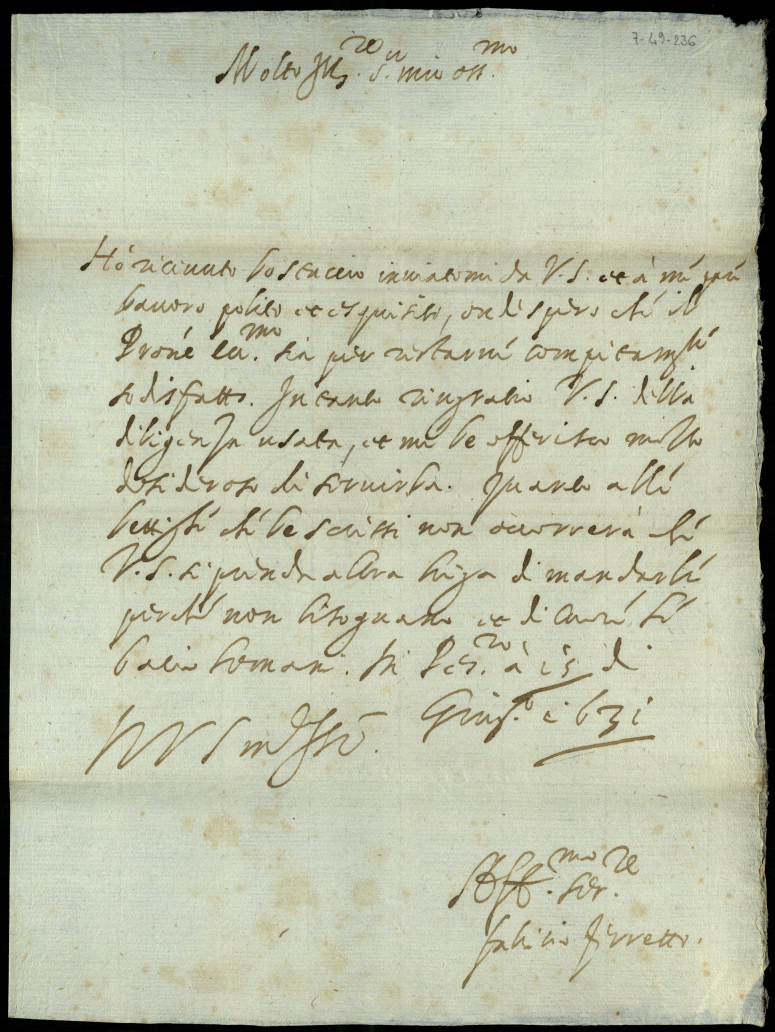 7-49-236
Molto Ill.re S.r mio oss.mo
Hò riceuuto lo scaccio inuiatomi da V.S. et à mè pare
lauoro polito et esquisito, onde spero che il
Prone ecc.mo sia per restarne compitam.te
sodisfatto. In tanto ringratio V.S. della
diligenza usata, et me le offerisco molto
desideroso di seruirla. Quanto alli
che le scrissi non occorrerà che
V.S. si prenda altra briga di mandarli
perche non bisognano et di cuore le
bacio le mani. Di Pes.ro à 15 di
Giug.o 1631
Di V S molto Ill.re
Aff.mo ser.re
Fabritio Ferretto.